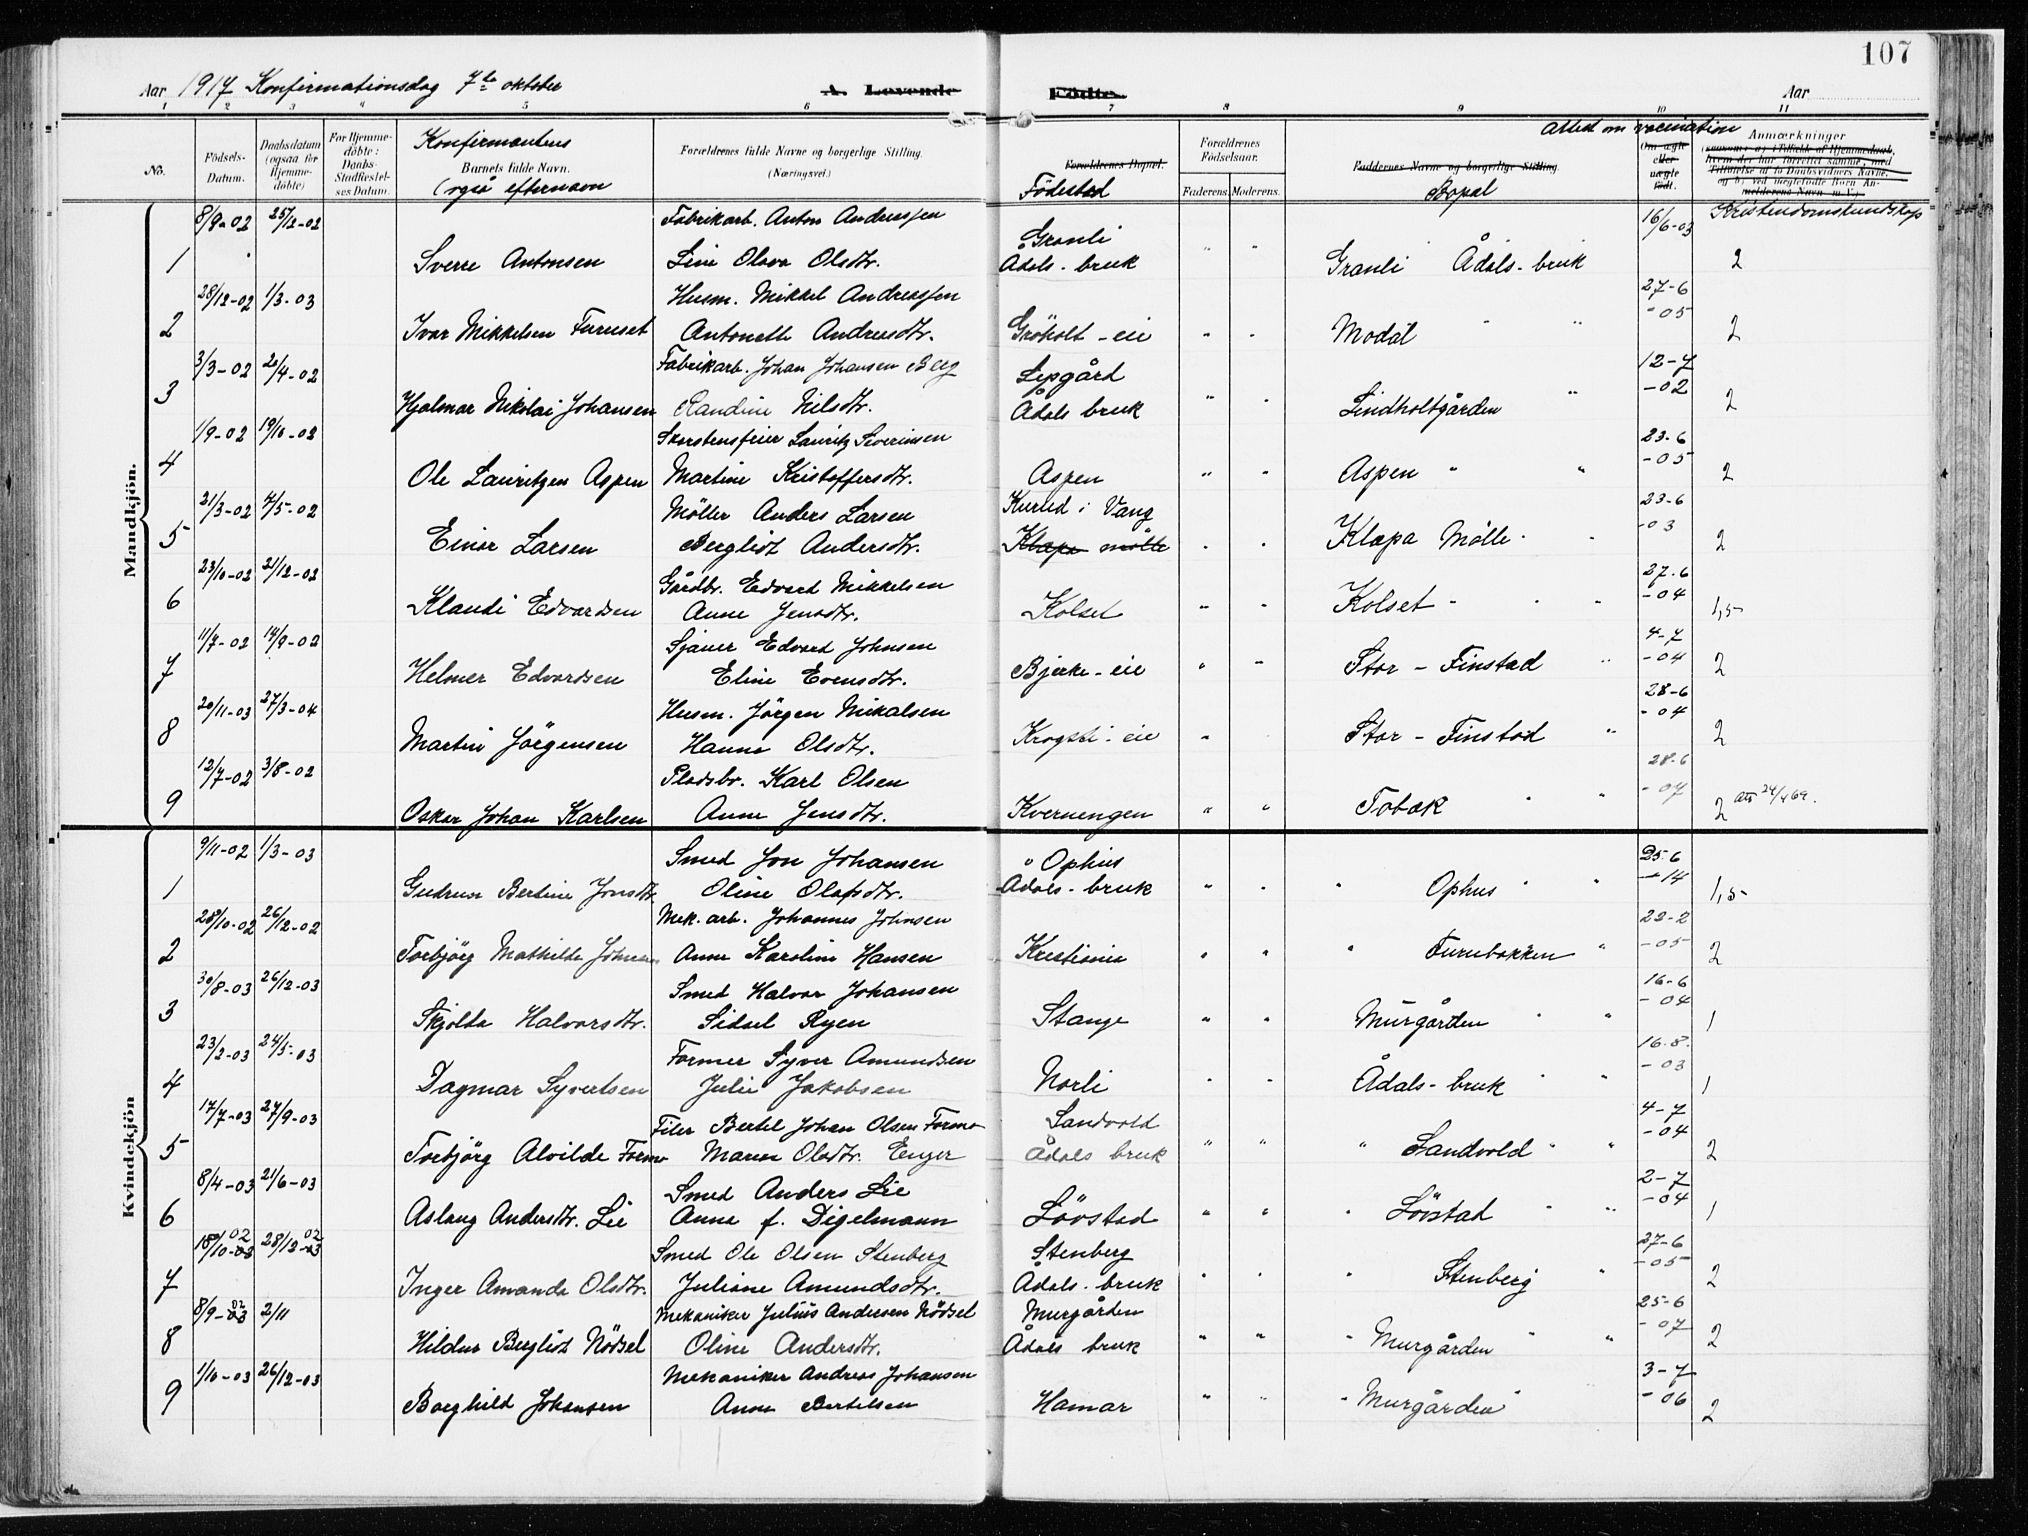 107
Aar 1917 Konfirmationsdag 7de oktober A. Levende Födte. Aar
1 2 3 4 5 6 7 8 9 10 11
No.
Födsels-Datum.
Daabsdatum (ogsaa for Hjemme-döbte)
For Hjemme-döbte: Daabs-Stadfæstel-ses Datum.
Konfirmantens
Barnets fulde Navn.
(også efternavn
Forældrenes fulde Navne og borgerlige Stilling.
(Næringsvei.)
Forældrenes Bopæl.
Födested
Forældrenes Födselsaar.
Faderens. Moderens.
Faddernes Navne og borgerlige Stilling.
Bopæl
Attest om vacination
Om ægte eller uægte födt.
Anmærkninger
Kristendomskundskap
Mandkjön.
8/9-02 25/12-02 Fabrikarb. Anton Andreassen Granli 16/6-03
1 Sverre Antonsen Line Olava Olsdtr. Ådals-bruk " " Granli Ådals-bruk 2
28/12-02 1/3-03 Husm. Mikkel Andreassen 27-6
2 Ivar Mikkelsen Furuset Antonette Andreasdtr. Gröholt-eie " " Modal " " -05 2
3/3-02 20/4-02 Fabrikarb. Johan Johansen Berg Lepgård 12-7
3 Hjalmar Nikolai Johansen Randine Nilsdtr. Ådals bruk " " Lindholtgården " -02 2
1/9-02 19/10-02 Skorstensfeier Lauritz Severinsen 23-6
4 Ole Lauritzen Aspen Martine Kristoffersdtr. Aspen " " Aspen " " -05 2
31/3-02 4/5-02 Möller Anders Larsen Kurud i Vang 23-6
5 Einar Larsen Bergliot Andersdtr. Klæpa mölle " " Klæpa Mölle " " -03 2
23/10-02 21/12-02 Gårdbr. Edvard Mikkelsen 27-6
6 Klaudi Edvardsen Anne Jensdtr. Kolset " " Kolset " " " -04 1,5
11/7-02 14/9-02 Sjauer Edvard Johnsen 4-7
7 Helmer Edvardsen Eline Evensdtr. Bjerke-eie " " Stor-Finstad " -04 2
20/11-03 27/3-04 Husm. Jörgen Mikalsen 28-6
8 Martin Jörgensen Hanna Olsdtr. Krogsti-eie " Stor-Finstad " -04 2
12/7-02 3/8-02 Pladsbr. Karl Olsen 28-6
9 Oskar Johan Karlsen Anne Jensdtr. Kvernengen " " Tobak " " -07 2 att 24/4 69.
Kvindekjön
9/11-02 1/3-03 Smed Jon Johansen Ophus 25-6
1 Gudrun Bertine Jonsdtr. Oline Olafsdtr. Ådals-bruk " " " Ophus " " -14 1,5
28/10-02 26/12-02 Mek. arb. Johannes Johnsen 22-2
2 Torbjörg Mathilde Johnsen Anne Karoline Hansen Kristiania " " " Furubakken " -05 2
30/8-03 26/12-03 Smed Halvor Johansen 16-6
3 Skjolda Halvorsdtr. Sidsel Ryen Stange " " Murgården " " -04 1
23/2-03 24/5-03 Former Syver Amundsen 16-8
4 Dagmar Syvertsen Julie Jakobsen Norli " " Ådals-bruk " " -03 1
17/7-03 27/9-03 Filer Bertel Johan Olsen Formo Sandvold 4-7
5 Torbjörg Alvilde Formo Maren Olsdtr. Enger Ådals bruk " " " Sandvold " " -04 2
8/4-03 21/6-03 Smed Anders Lie 2-7
6 Aslaug Andersdtr. Lie Anna f. Digelmann Lövstad " " " Lövstad " " -04 1
18/10-03 02 28/12-03 02 Smed Ole Olsen Stenberg Stenberg 27-6
7 Inger Amanda Olsdtr. Juliane Amundsdtr. Ådals-bruk " " " Stenberg " -05 2
8/9-03 02 2/11 Mekaniker Julius Andersen Nödsel Murgården 25-6
8 Hildur Bergliot Nödsel Oline Andersdtr. Ådals bruk " " " Murgården " " -07 2
1/10-03 26/12-03 Mekaniker Andreas Johansen 3-7
9 Borghild Johansen Anna Bertelsen Hamar " " " Murgården " -06 2